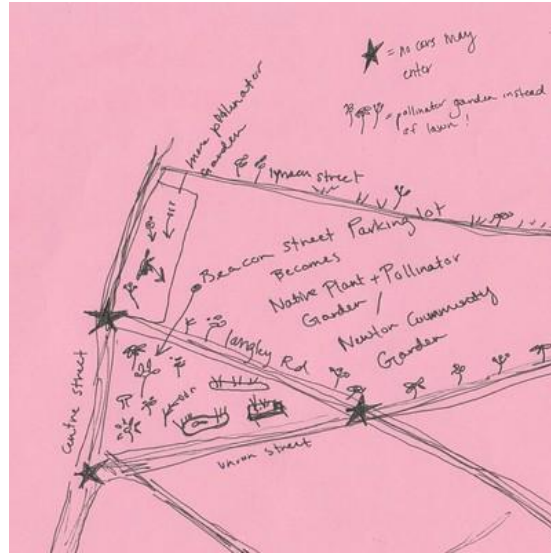 ★ = no cars may
enter
= pollinator garden instead
of lawn!
more pollinator
Garden
lyman street
Beacon street Parking lot
Becomes
Native Plant + Pollinator
Garden /
Newton Community
Garden
langley Rd
centre street
union street